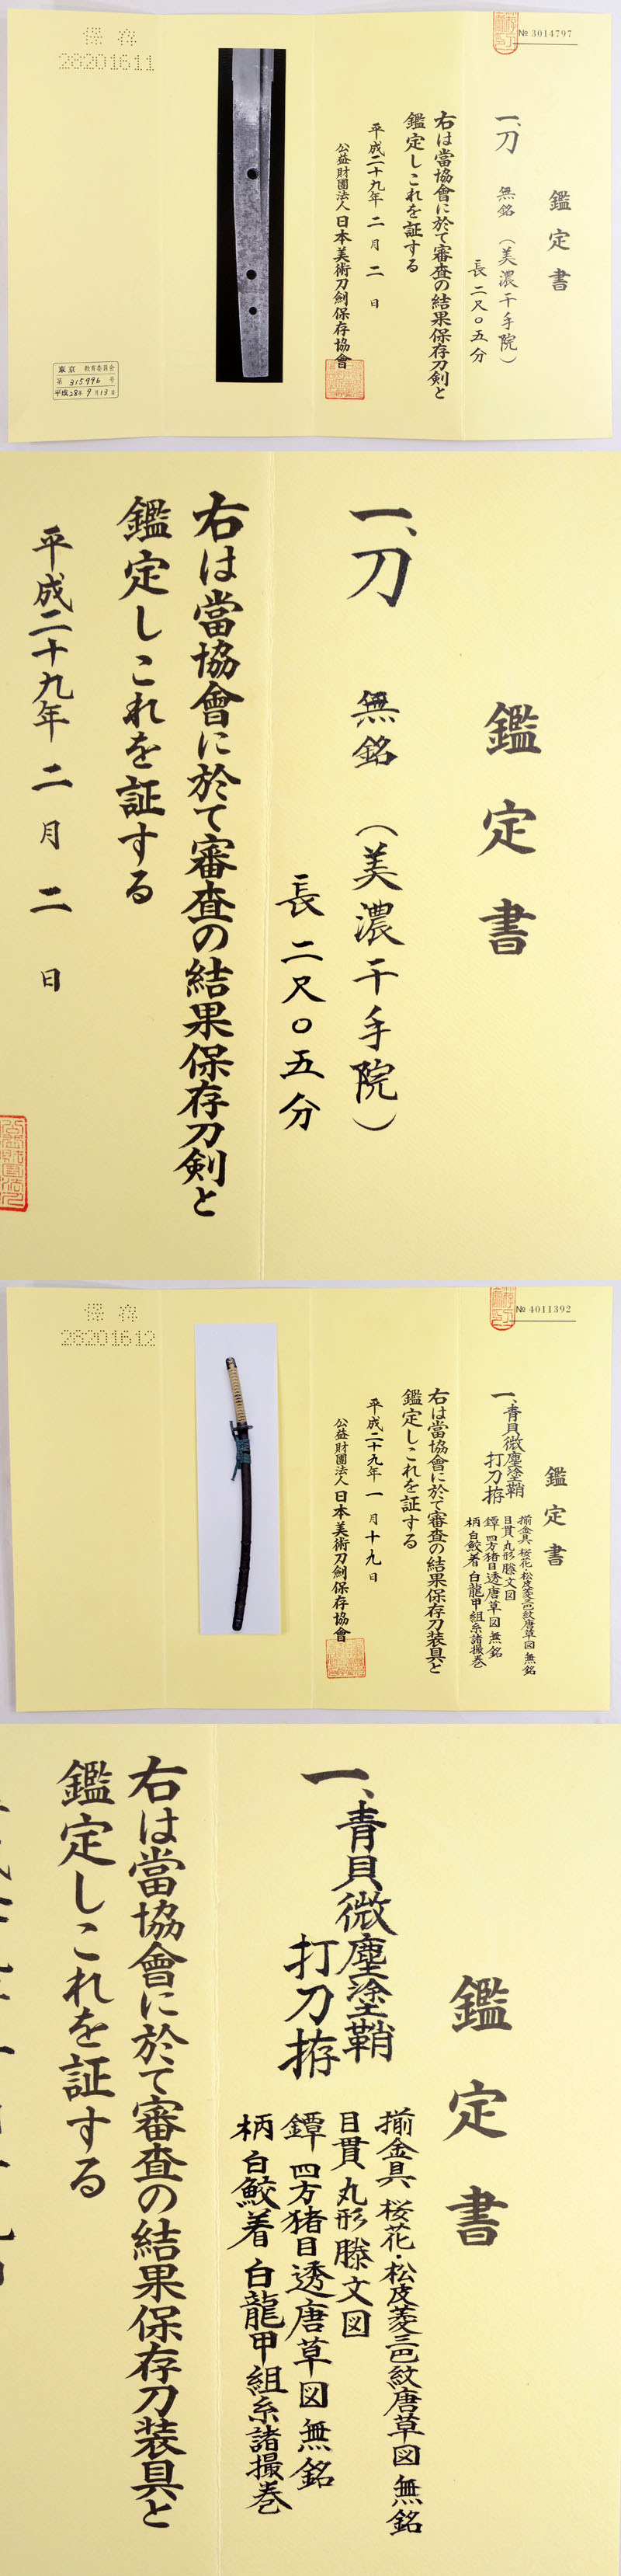 № 3014797
鑑定書
一、刀 無銘 (美濃千手院)
長 二尺〇五分
右は當協會に於て審査の結果保存刀剣と
鑑定しこれを証する
平成二十九年 二 月 二 日
公益財團法人 日本美術刀劍保存協會
保存
28201611
東京 教育委員会
第 315996 号
平成28年 9月13日
鑑定書
一、刀 無銘 (美濃千手院)
長 二尺〇五分
右は當協會に於て審査の結果保存刀剣と
鑑定しこれを証する
平成二十九年 二 月 二 日
№ 4011392
鑑定書
一、青貝微塵塗鞘
打刀拵
揃金具 桜花・松皮菱三巴紋唐草図 無銘
目貫 丸形滕文図
鐔 四方猪目透唐草図 無銘
柄 白鮫着 白龍甲組糸諸撮巻
右は當協會に於て審査の結果保存刀装具と
鑑定しこれを証する
平成二十九年 一 月 十九 日
公益財團法人 日本美術刀劍保存協會
保存
28201612
鑑定書
一、青貝微塵塗鞘
打刀拵
揃金具 桜花・松皮菱三巴紋唐草図 無銘
目貫 丸形滕文図
鐔 四方猪目透唐草図 無銘
柄 白鮫着 白龍甲組糸諸撮巻
右は當協會に於て審査の結果保存刀装具と
鑑定しこれを証する